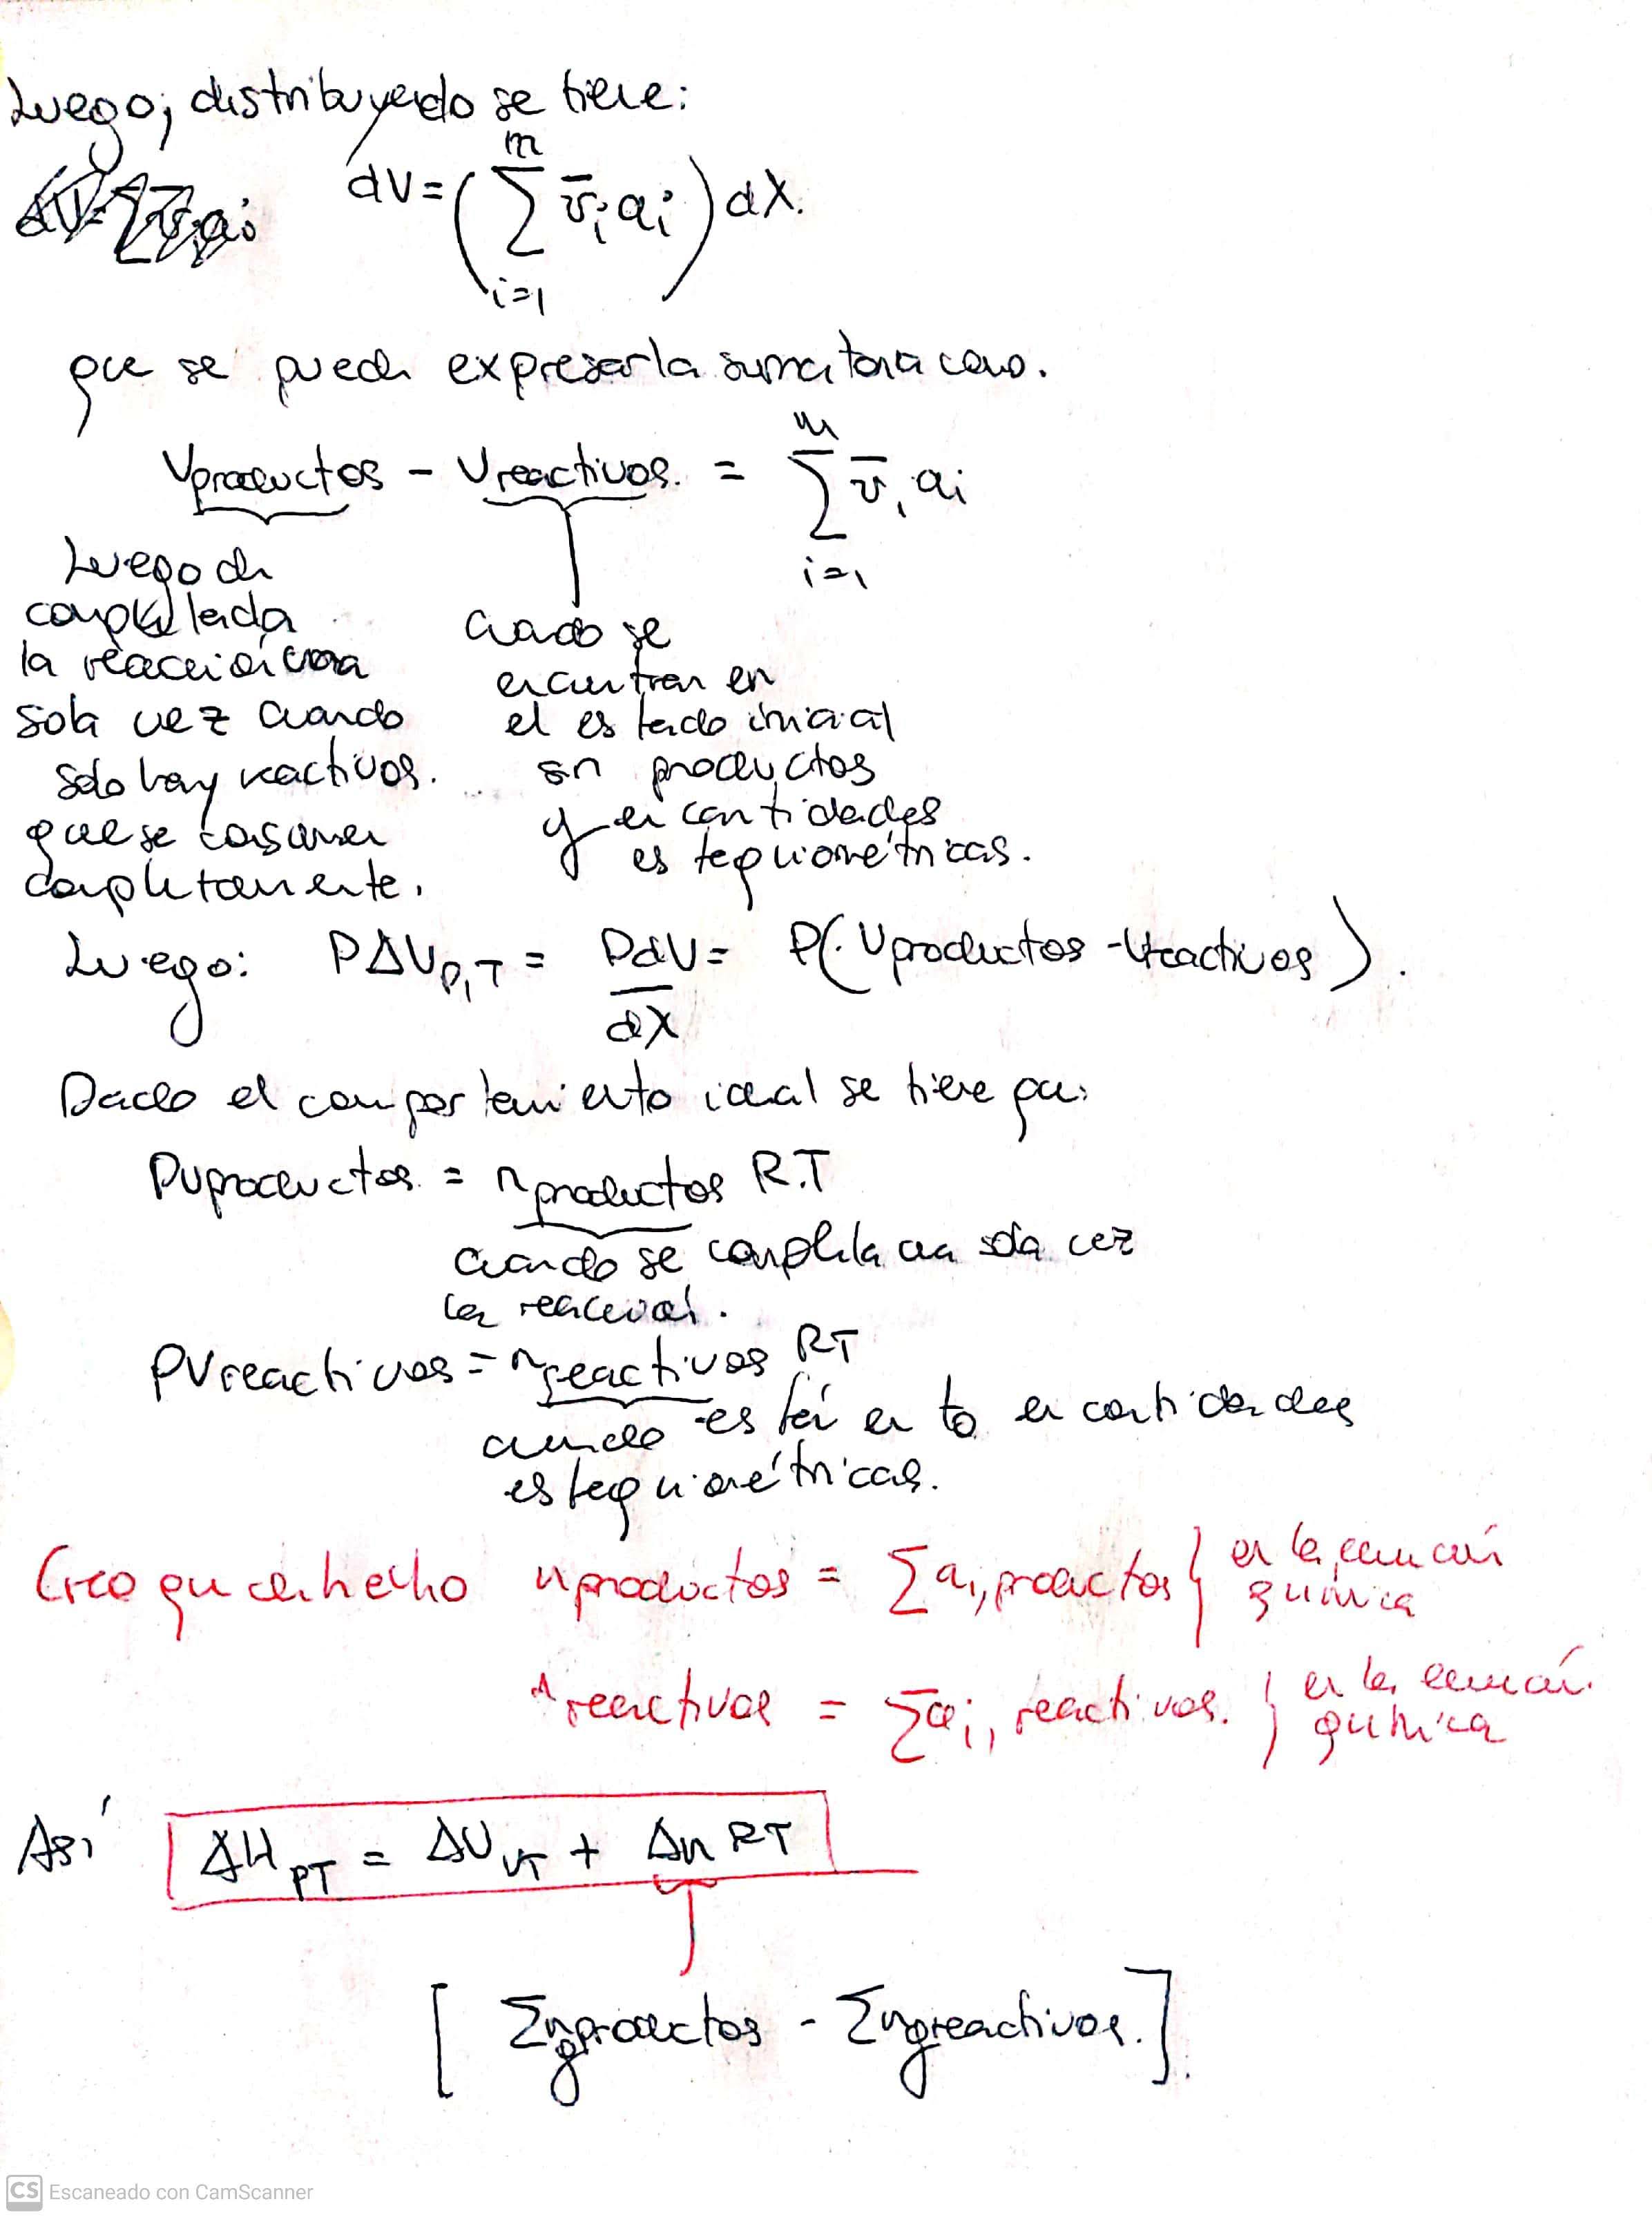 Luego; distribuyendo se tiene:
dV = ( \sum_{i=1}^{m} \bar{v}_i a_i ) dX.
que se puede expresar la sumatoria como.
Vproductos - Vreactivos. = \sum_{i=1}^{m} \bar{v}_i a_i
Luego de
completada
la reacción una
sola vez cuando
solo hay reactivos.
que se consumen
completamente.
cuando se
encuentran en
el estado inicial
sin productos
y en cantidades
estequiométricas.
Luego: PΔV_{P,T} = PdV/dX = P(Vproductos - Vreactivos).
Dado el comportamiento ideal se tiene que:
PVproductos = n productos R.T
cuando se completa una sola vez
la reacción.
PVreactivos = n reactivos RT
cuando está en t0 en cantidades
estequiométricas.
Creo que de hecho n productos = Σ ai, productos } en la ecuación química
n reactivos = Σ ai, reactivos. } en la ecuación química
Así ΔH_{PT} = ΔU_{VT} + Δn RT
[ Σ ng productos - Σ ng reactivos. ]
CS Escaneado con CamScanner